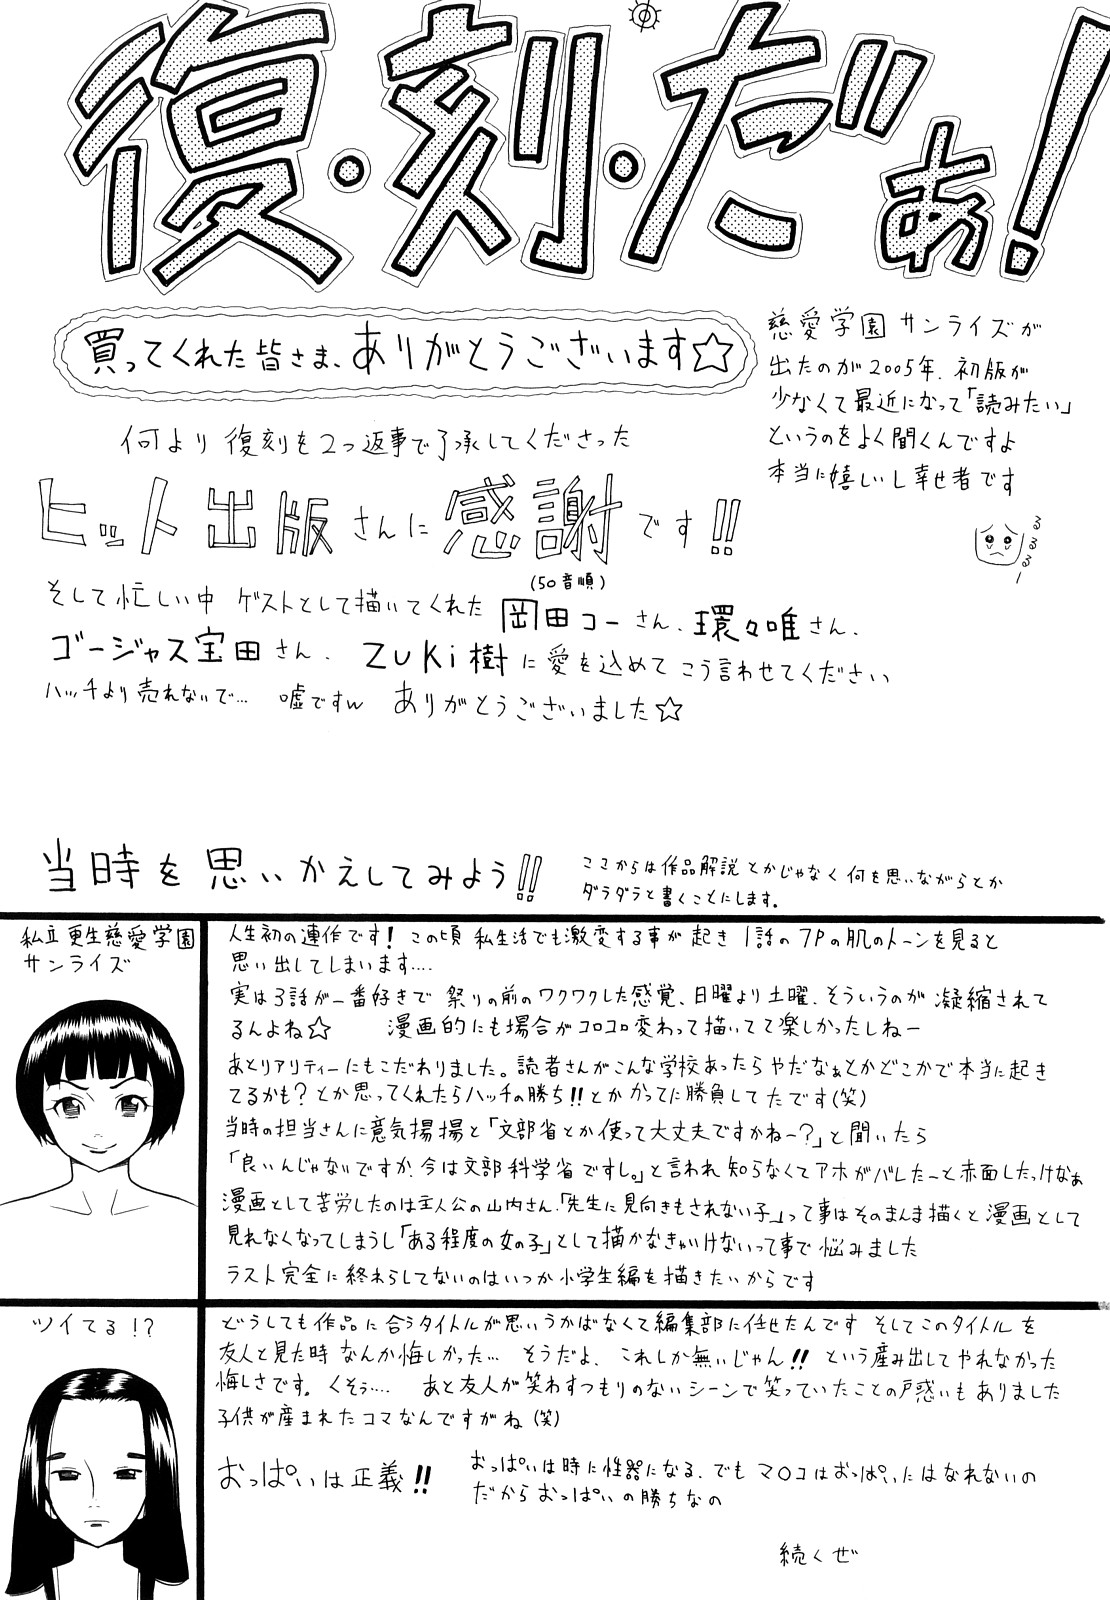 復・刻・だぁ!
買ってくれた皆さま、ありがとうございます☆
慈愛学園サンライズが
出たのが2005年、初版が
少なくて最近になって「読みたい」
というのをよく聞くんですよ
本当に嬉しいし幸せ者です
何より復刻を2つ返事で了承してくださった
ヒット出版さんに感謝です!!
(50音順)
そして忙しい中 ゲストとして描いてくれた 岡田コーさん、環々唯さん、
ゴージャス宝田さん、 ZUKi樹に愛を込めてこう言わせてください
ハッチより売れないで… 嘘ですw ありがとうございました☆
当時を思いかえしてみよう!!
ここからは作品解説とかじゃなく何を思いながらとか
ダラダラと書くことにします。
私立更生慈愛学園
サンライズ
人生初の連作です! この頃 私生活でも激変する事が起き 1話の7Pの肌のトーンを見ると
思い出してしまいます….
実は3話が一番好きで 祭りの前のワクワクした感覚、日曜より土曜、そういうのが凝縮されて
るんよね☆ 漫画的にも場合がコロコロ変わって描いてて楽しかったしねー
あとリアリティーにもこだわりました。読者さんがこんな学校あったらやだなぁとかどこかで本当に起き
てるかも?とか思ってくれたらハッチの勝ち!!とかかってに勝負してたです(笑)
当時の担当さんに意気揚揚と「文部省とか使って大丈夫ですかねー?」と聞いたら
「良いんじゃないですか、今は文部科学省ですし。」と言われ知らなくてアホがバレたーと赤面したっけなぁ
漫画として苦労したのは主人公の山内さん、「先生に見向きもされない子」って事はそのまんま描くと漫画として
見れなくなってしまうし「ある程度の女の子」として描かなきゃいけないって事で悩みました
ラスト完全に終わらしてないのはいつか小学生編を描きたいからです
ツイてる!?
どうしても作品に合うタイトルが思いうかばなくて編集部に任せたんです そしてこのタイトルを
友人と見た時なんか悔しかった… そうだよ、これしか無いじゃん!! という産み出してやれなかった
悔しさです。くそぅ…. あと友人が笑わすつもりのないシーンで笑っていたことの戸惑いもありました
子供が産まれたコマなんですがね(笑)
おっぱいは正義!!
おっぱいは時に性器になる、でもマ○コはおっぱいにはなれないの
だからおっぱいの勝ちなの
続くぜ